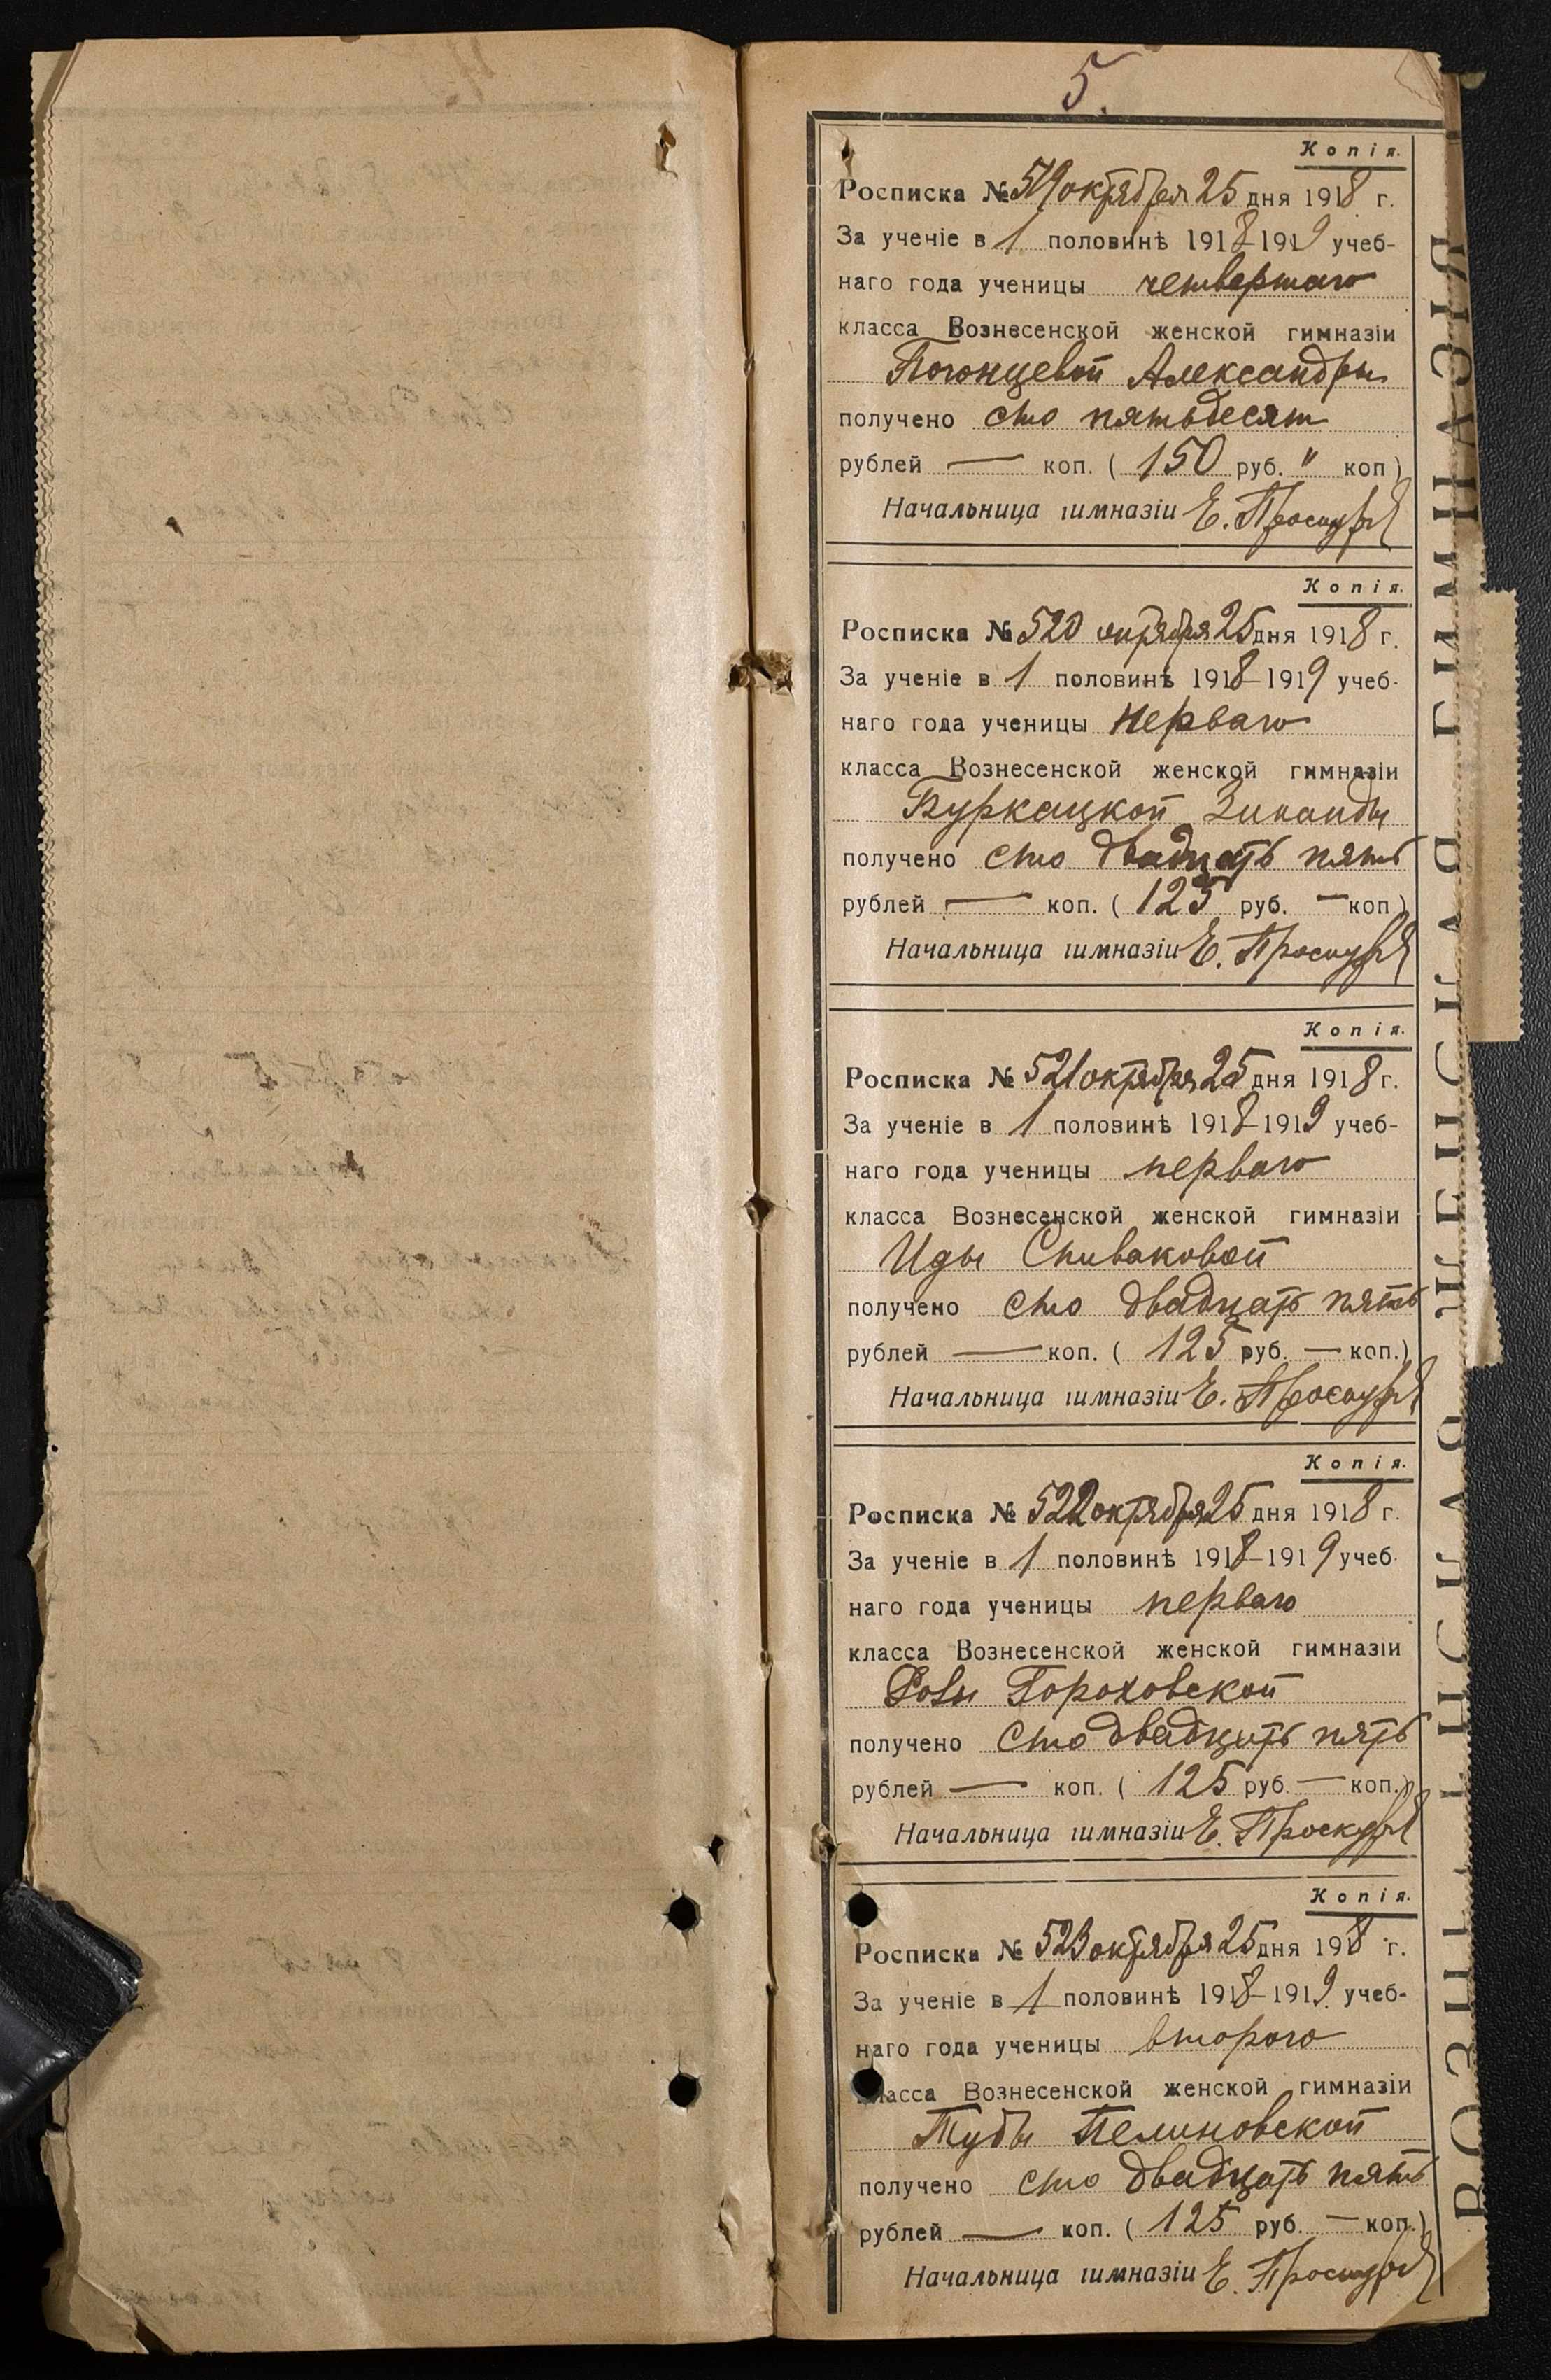 5.
Копія.
Росписка № 519 октября 25 дня 1918 г.
За ученіе в 1 половинѣ 1918-1919 учеб-
наго года ученицы четвертаго
класса Вознесенской женской гимназіи
Погонцевой Александры
получено сто пятьдесят
рублей — коп. ( 150 руб. " коп )
Начальница гимназіи Е.
Копія.
Росписка № 520 октября 25 дня 1918 г.
За ученіе в 1 половинѣ 1918-1919 учеб-
наго года ученицы перваго
класса Вознесенской женской гимназіи
Буркацкой Зинаиды
получено сто двадцать пять
рублей — коп. ( 125 руб. — коп )
Начальница гимназіи Е.
Копія.
Росписка № 521 октября 25 дня 1918 г.
За ученіе в 1 половинѣ 1918-1919 учеб-
наго года ученицы перваго
класса Вознесенской женской гимназіи
Иды Спиваковой
получено сто двадцать пять
рублей — коп. ( 125 руб. — коп.)
Начальница гимназіи Е.
Копія.
Росписка № 522 октября 25 дня 1918 г.
За ученіе в 1 половинѣ 1918-1919 учеб-
наго года ученицы перваго
класса Вознесенской женской гимназіи
Розы Гороховской
получено сто двадцать пять
рублей — коп. ( 125 руб. — коп.)
Начальница гимназіи Е.
Копія.
Росписка № 523 октября 25 дня 1918 г.
За ученіе в 1 половинѣ 1918-1919 учеб-
наго года ученицы второго
класса Вознесенской женской гимназіи
Тубы Пелиновской
получено сто двадцать пять
рублей — коп. ( 125 руб. — коп.)
Начальница гимназіи Е.